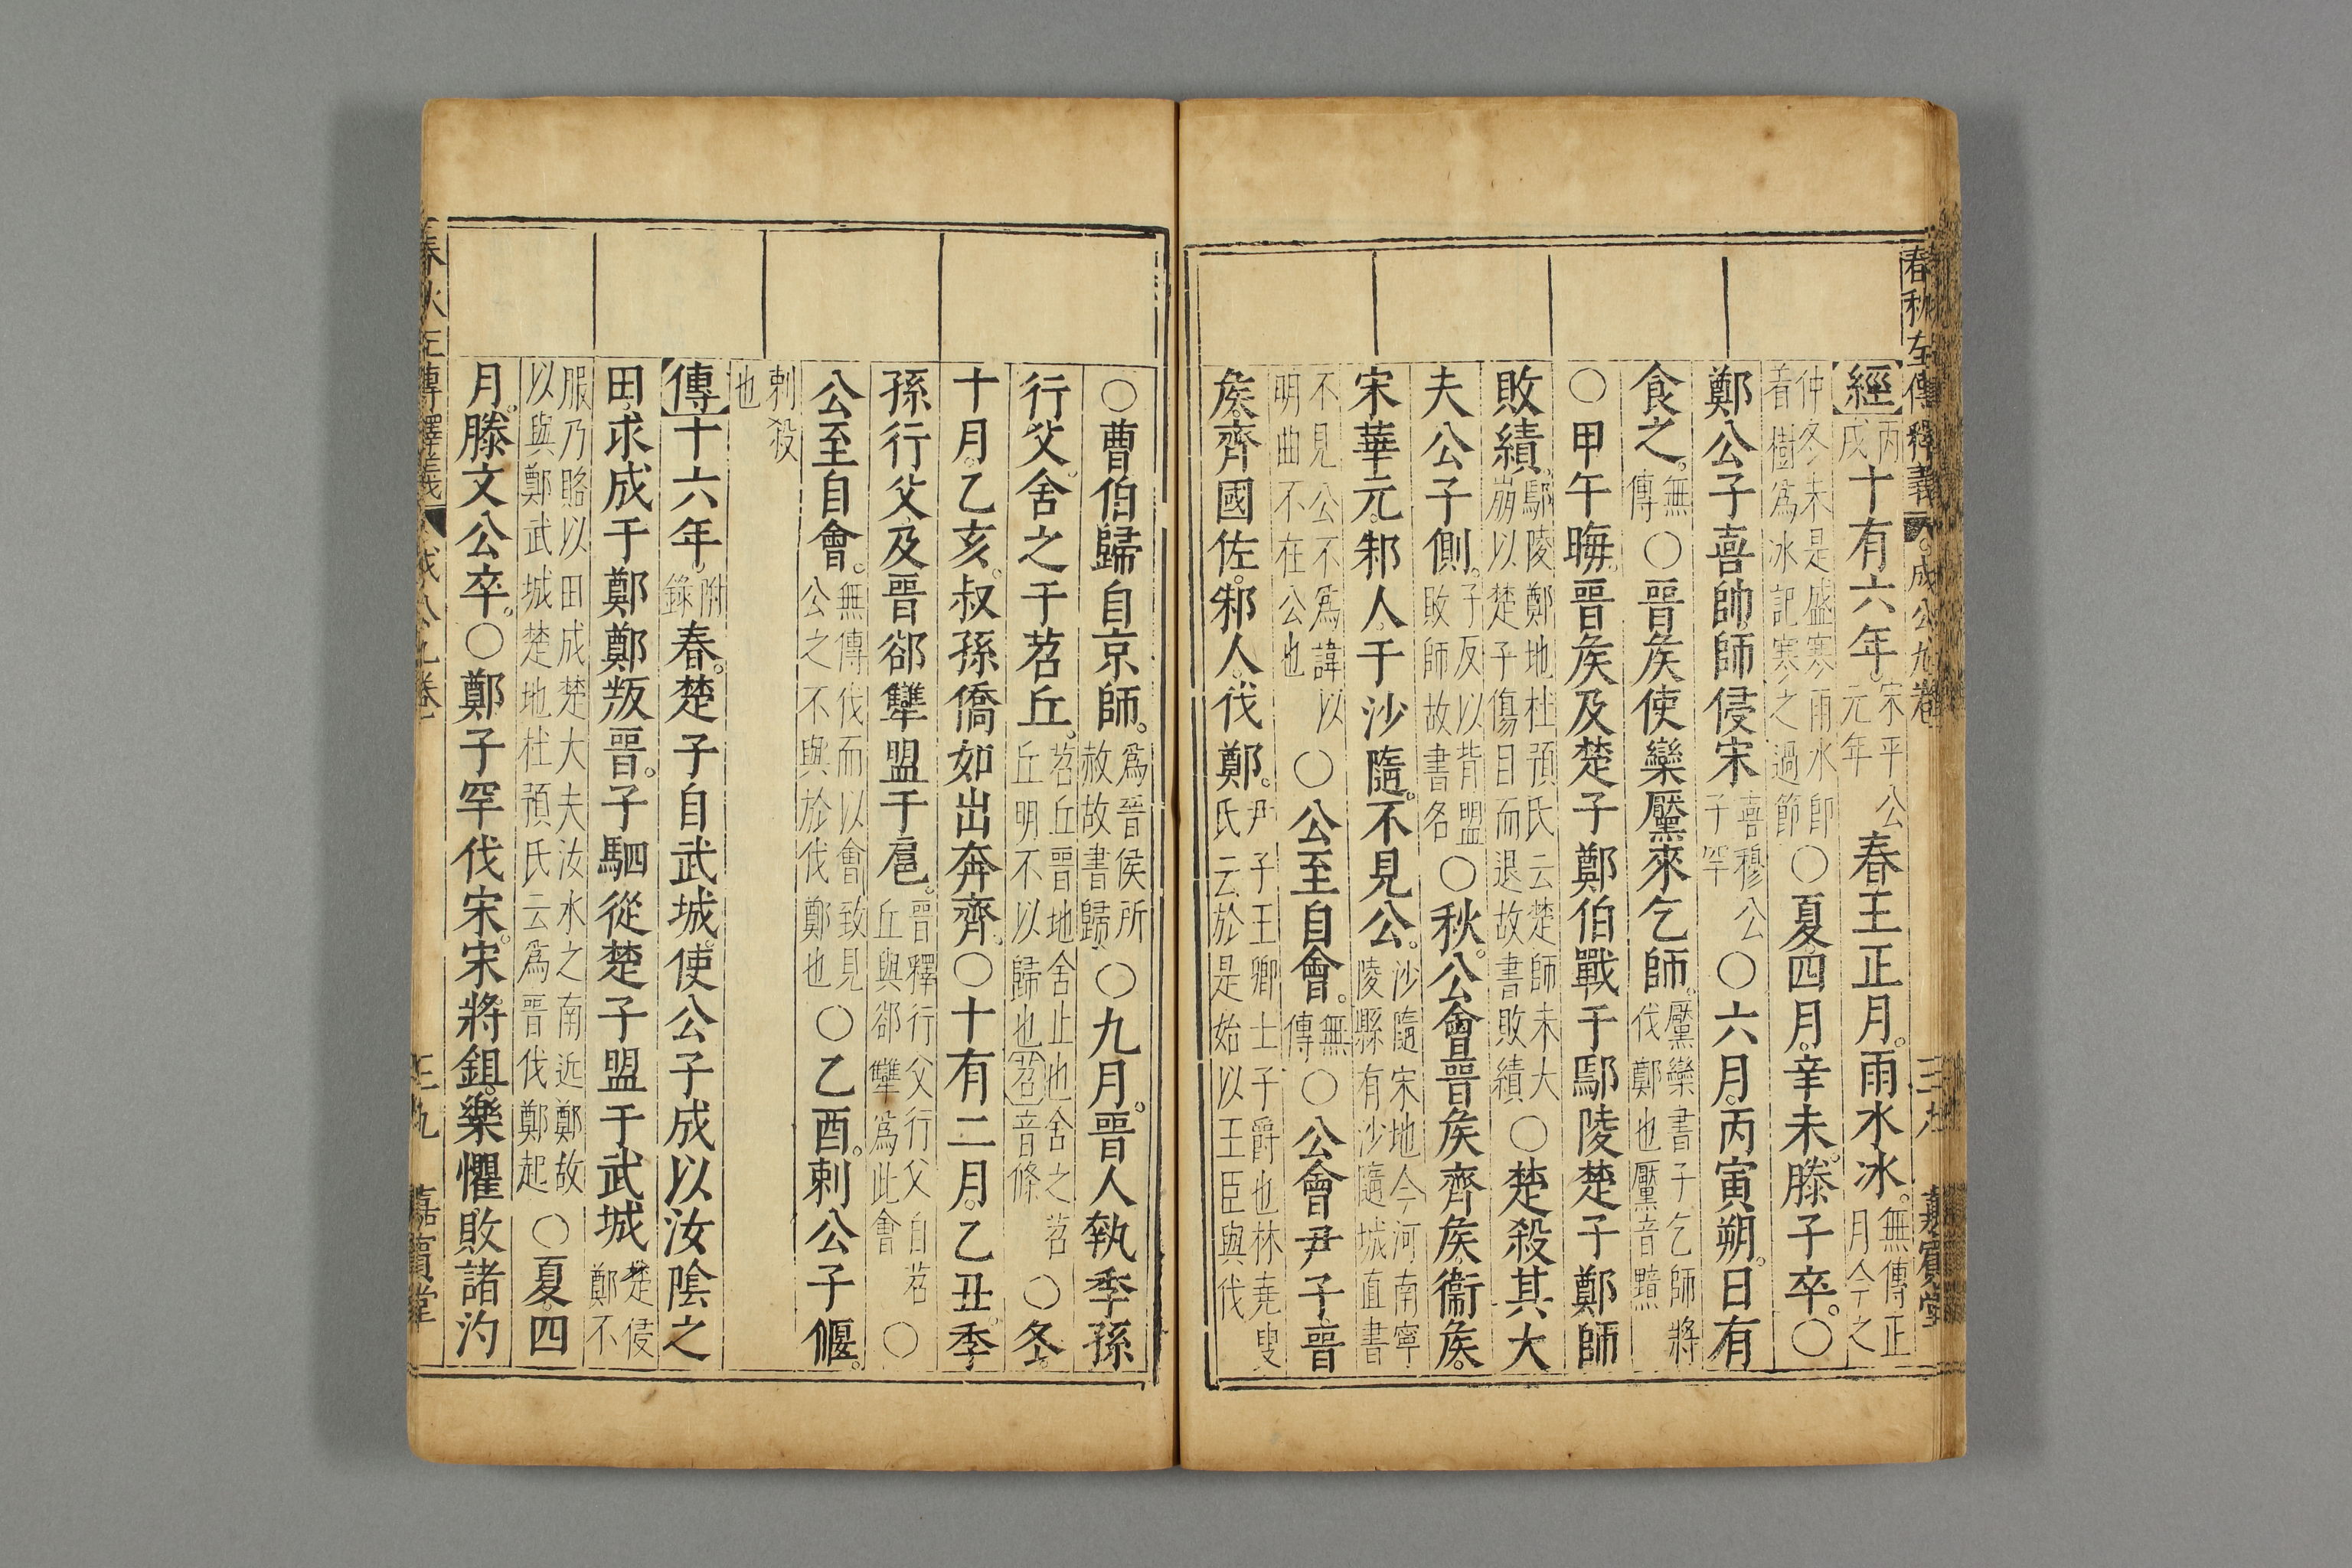 春秋左傳釋義 成公九卷 三九 嘉賓堂
經丙戌十有六年。宋平公元年春王正月。雨水冰。無傳正月今之
仲冬未是盛寒雨水卽着樹爲冰記寒之過節○夏四月。辛未。滕子卒。○
鄭公子喜帥師侵宋喜穆公子罕○六月。丙寅朔。日有
食之。無傳○晉矦使欒黶來乞師。黶欒書子乞師將伐鄭也黶音黯
○甲午晦。晉矦及楚子鄭伯戰于鄢陵楚子鄭師
敗績。鄢陵鄭地杜預氏云楚師未大崩以楚子傷目而退故書敗績○楚殺其大
夫公子側。子反以背盟敗師故書名○秋。公會晉矦齊矦。衞矦。
宋華元。邾人于沙隨。不見公。沙隨宋地今河南寧陵縣有沙隨城直書
不見公不爲諱以明曲不在公也○公至自會。無傳○公會尹子晉
矦。齊國佐。邾人。伐鄭。尹子王卿士子爵也林堯叟氏云於是始以王臣與伐
○曹伯歸自京師。爲晉侯所赦故書歸○九月。晉人執季孫
行父。舍之于苕丘。苕丘晉地舍止也舍之苕丘明不以歸也苕音條○冬。
十月。乙亥。叔孫僑如出奔齊。○十有二月。乙丑。季
孫行父及晉郤犫盟于扈。晉釋行父行父自苕丘與郤犫爲此會○
公至自會。無傳伐而以會致見公之不與於伐鄭也○乙酉。刺公子偃。
刺殺也
傳十六年。附錄春。楚子自武城。使公子成以汝陰之
田。求成于鄭鄭叛晉。子駟從楚子盟于武城楚侵鄭不
服乃賂以田成楚大夫汝水之南近鄭故以與鄭武城楚地杜預氏云爲晉伐鄭起○夏。四
月。滕文公卒。○鄭子罕伐宋。宋將鉏。樂懼敗諸汋
春秋左傳釋義 成公九卷 三九 嘉賓堂